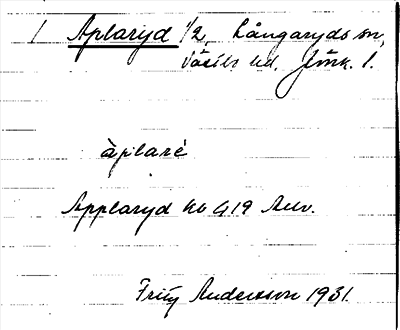 1 Aplaryd 1/2, Långaryds sn,
Västbo hd. Jönk. l.
àplaré
Applaryd kb G19 Auv.
Fritz Andersson 1931.